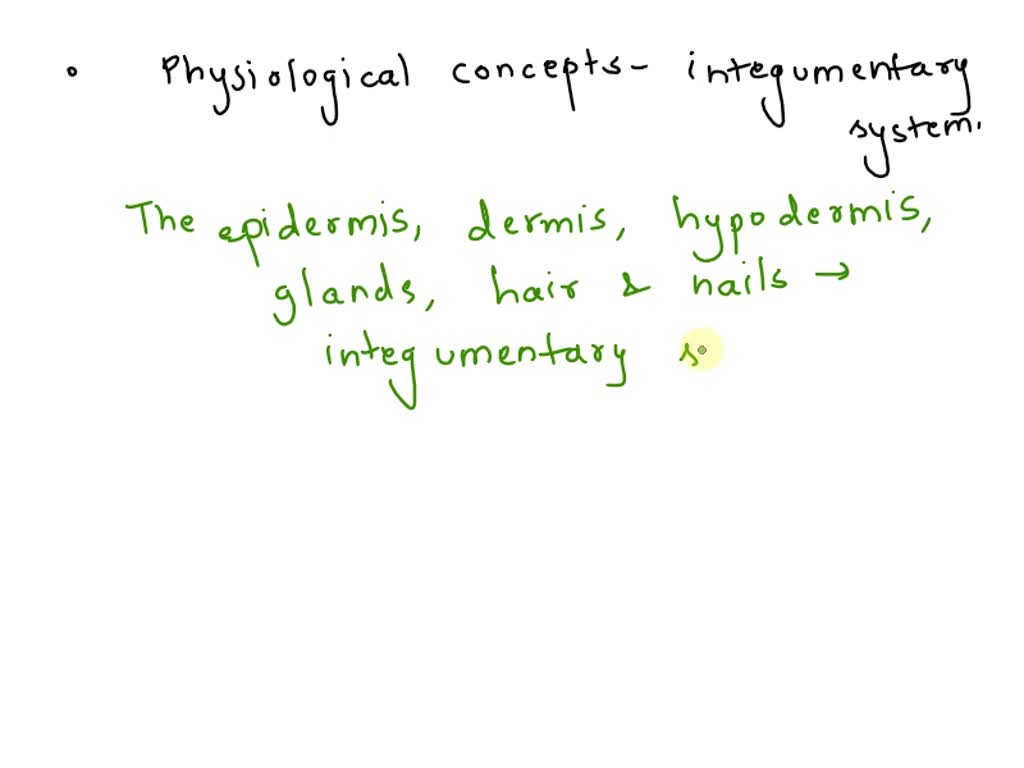 • Physiological concepts - integumentary
system.
The epidermis, dermis, hypodermis,
glands, hair & nails →
integumentary s